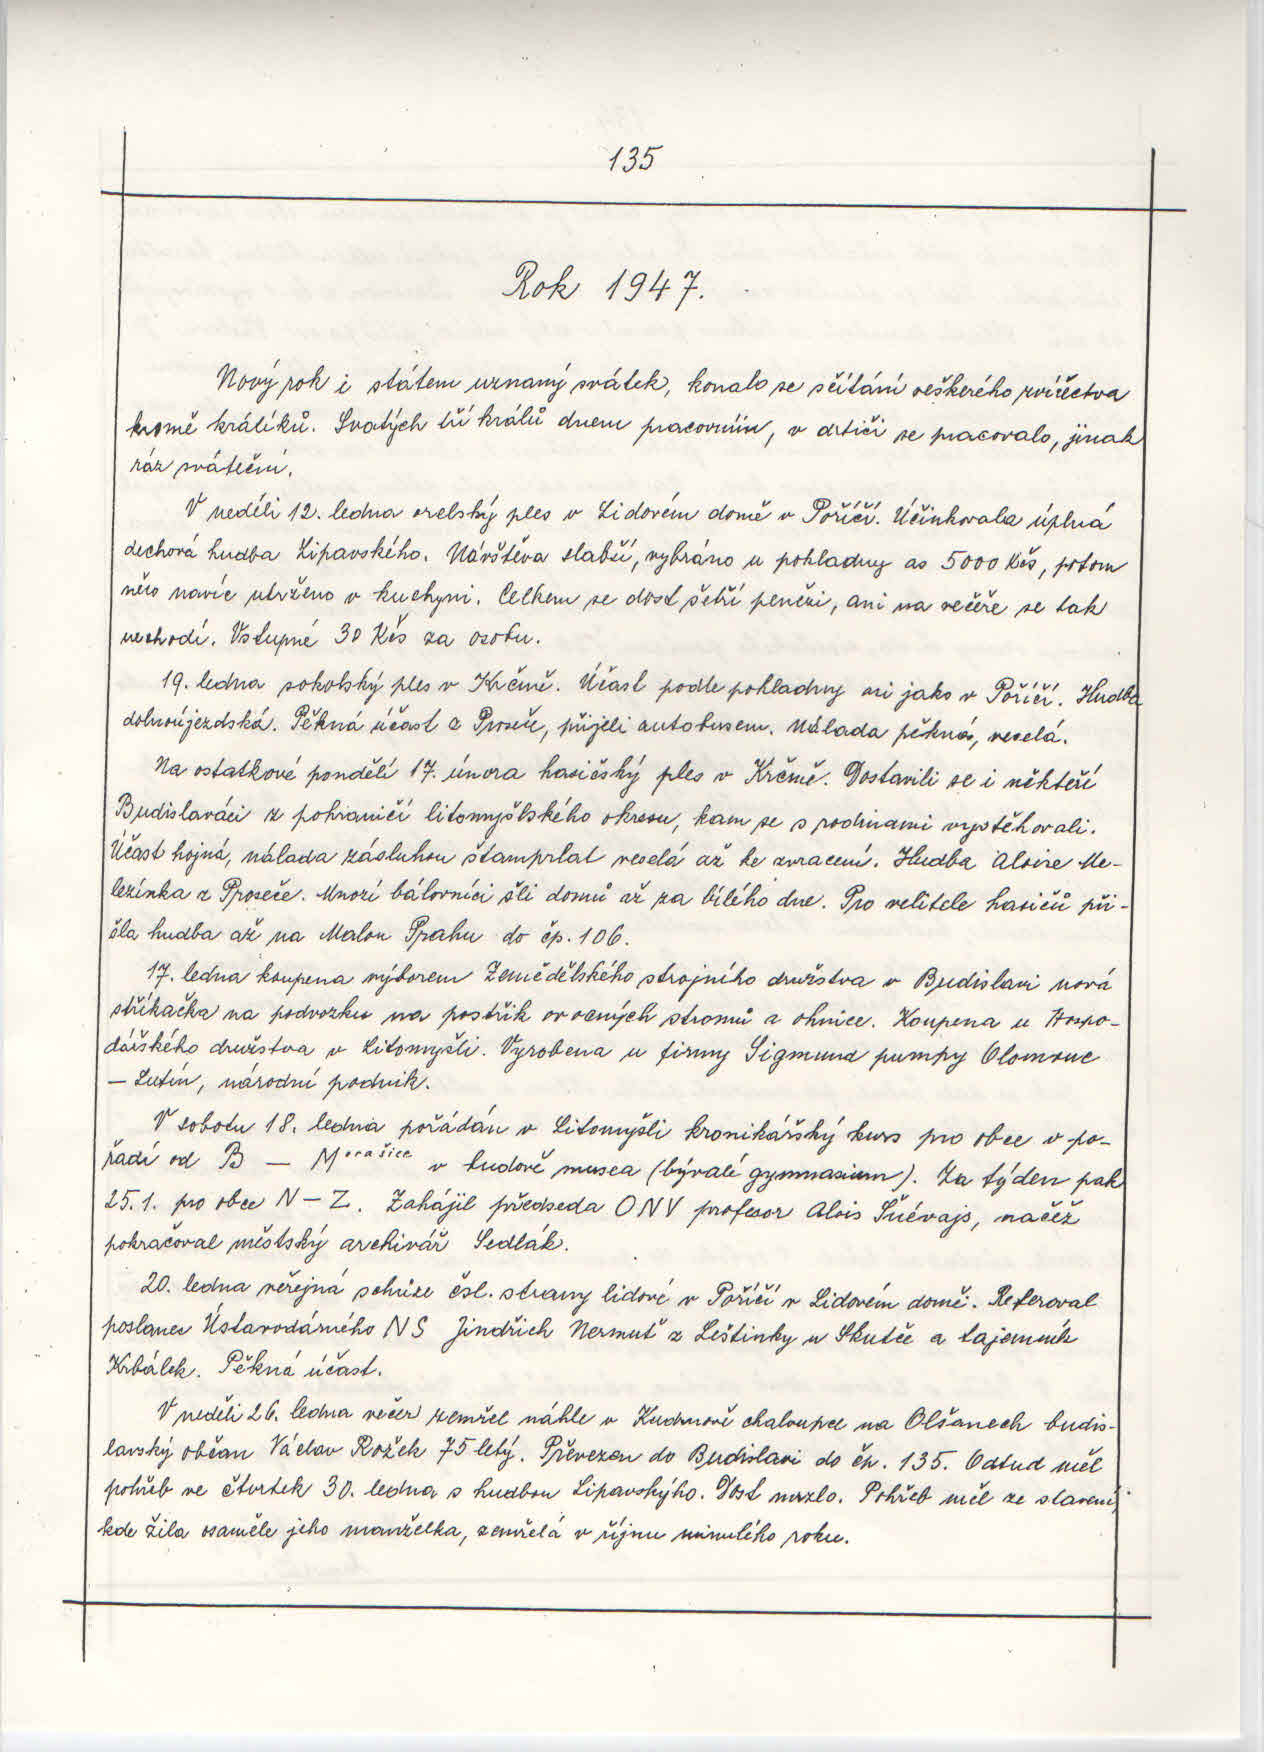 135
Rok 1947.
Nový rok i státem uznaný svátek, konalo se sčítání veškerého zvířectva
kromě králíků. Svatých tří králů dnem pracovním, v drtiči se pracovalo, jinak
ráz sváteční.
V neděli 12. ledna orelský ples v Lidovém domě v Poříčí. Účinkovala úplná
dechová hudba Lipavského. Návštěva slabší, vybráno u pokladny as 5000 Kčs, potom
něco navíc utrženo v kuchyni. Celkem se dost šetří penězi, ani na večeře se tak
nechodí. Vstupné 30 Kčs za osobu.
19. ledna sokolský ples v Krčmě. Účast podle pokladny asi jako v Poříčí. Hudba
dolnoújezdská. Pěkná účast z Proseče, přijeli autobusem. Nálada pěkná, veselá.
Na ostatkové pondělí 17. února hasičský ples v Krčmě. Dostavili se i někteří
Budislaváci z pohraničí litomyšlského okresu, kam se s rodinami vystěhovali.
Účast hojná, nálada zásluhou štamprlat veselá až ke zvracení. Hudba Aloise Me-
lezínka z Proseče. Mnozí bálovníci šli domů až za bílého dne. Pro velitele hasičů při-
šla hudba až na Malou Prahu do čp. 106.
17. ledna koupena výborem Zemědělského strojního družstva v Budislavi nová
stříkačka na podvozku na postřik ovocných stromů a ohnice. Koupena u Hospo-
dářského družstva v Litomyšli. Vyrobena u firmy Sigmund pumpy Olomouc
– Lutín, národní podnik.
V sobotu 18. ledna pořádán v Litomyšli kronikářský kurs pro obce v po-
řadí od B – Morašice v budově musea (bývalé gymnasium). Za týden pak
25.1. pro obce N – Z. Zahájil předseda ONV profesor Alois Šnévajs, načež
pokračoval městský archivář Sedlák.
20. ledna veřejná schůze čsl. strany lidové v Poříčí v Lidovém domě. Referoval
poslanec Ústavodárného NS Jindřich Nermuť z Leštinky u Skutče a tajemník
Krbálek. Pěkná účast.
V neděli 26. ledna večer zemřel náhle v Kudrnově chaloupce na Olšanech budis-
lavský občan Václav Rožek 75 letý. Převezen do Budislavi do čp. 135. Odtud měl
pohřeb ve čtvrtek 30. ledna s hudbou Lipavskýho. Dost mrzlo. Pohřeb měl ze stavení,
kde žila osaměle jeho manželka, zemřelá v říjnu minulého roku.